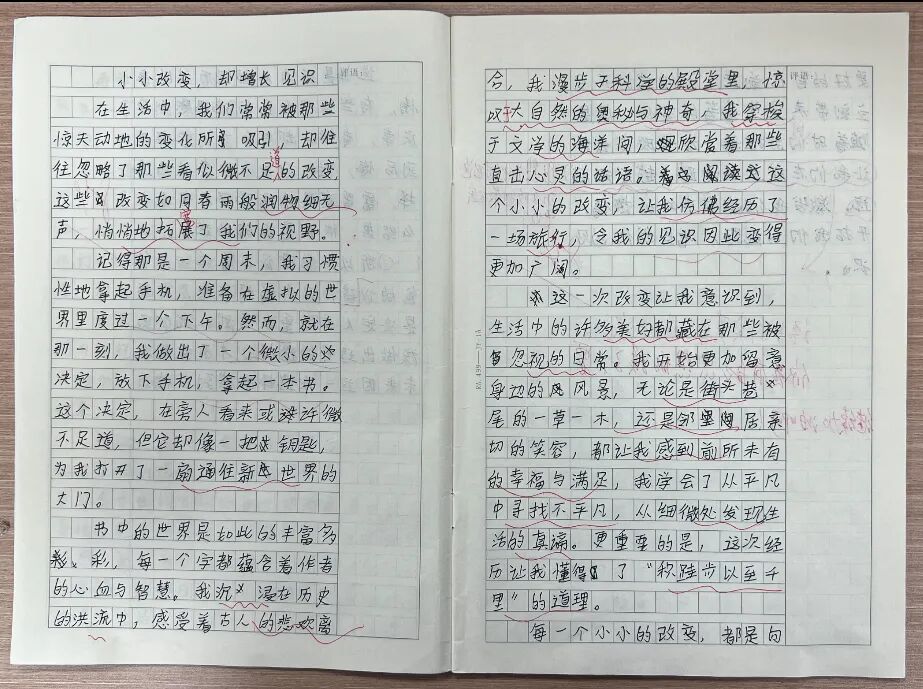 小小改变，却增长见识
在生活中，我们常常被那些
惊天动地的变化所吸引，却往
往忽略了那些看似微不足道的改变
这些改变如同春雨般润物细无
声，悄悄地拓宽了我们的视野。
记得那是一个周末，我习惯
性地拿起手机，准备在虚拟的世
界里度过一个下午。然而，就在
那一刻，我做出了一个微小的
决定，放下手机，拿起一本书。
这个决定，在旁人看来或许微
不足道，但它却像一把钥匙，
为我打开了一扇通往新世界的
大门。
书中的世界是如此的丰富多
彩，每一个字都蕴含着作者
的心血与智慧。我沉浸在历史
的洪流中，感受着古人的悲欢离
合，我漫步于科学的殿堂里，惊
叹于大自然的奥秘与神奇，我穿梭
于文学的海洋间，欣赏着那些
直击心灵的话语。阅读这
个小小的改变，让我仿佛经历了
一场旅行，令我的见识因此变得
更加广阔。
这一次改变让我意识到，
生活中的许多美好都藏在那些被
忽视的日常。我开始更加留意
身边的风景，无论是街头巷
尾的一草一木，还是邻里居亲
切的笑容，都让我感到前所未有
的幸福与满足，我学会了从平凡
中寻找不平凡，从细微处发现生
活的真谛。更重要的是，这次经
历让我懂得了“积跬步以至千
里”的道理。
每一个小小的改变，都是向